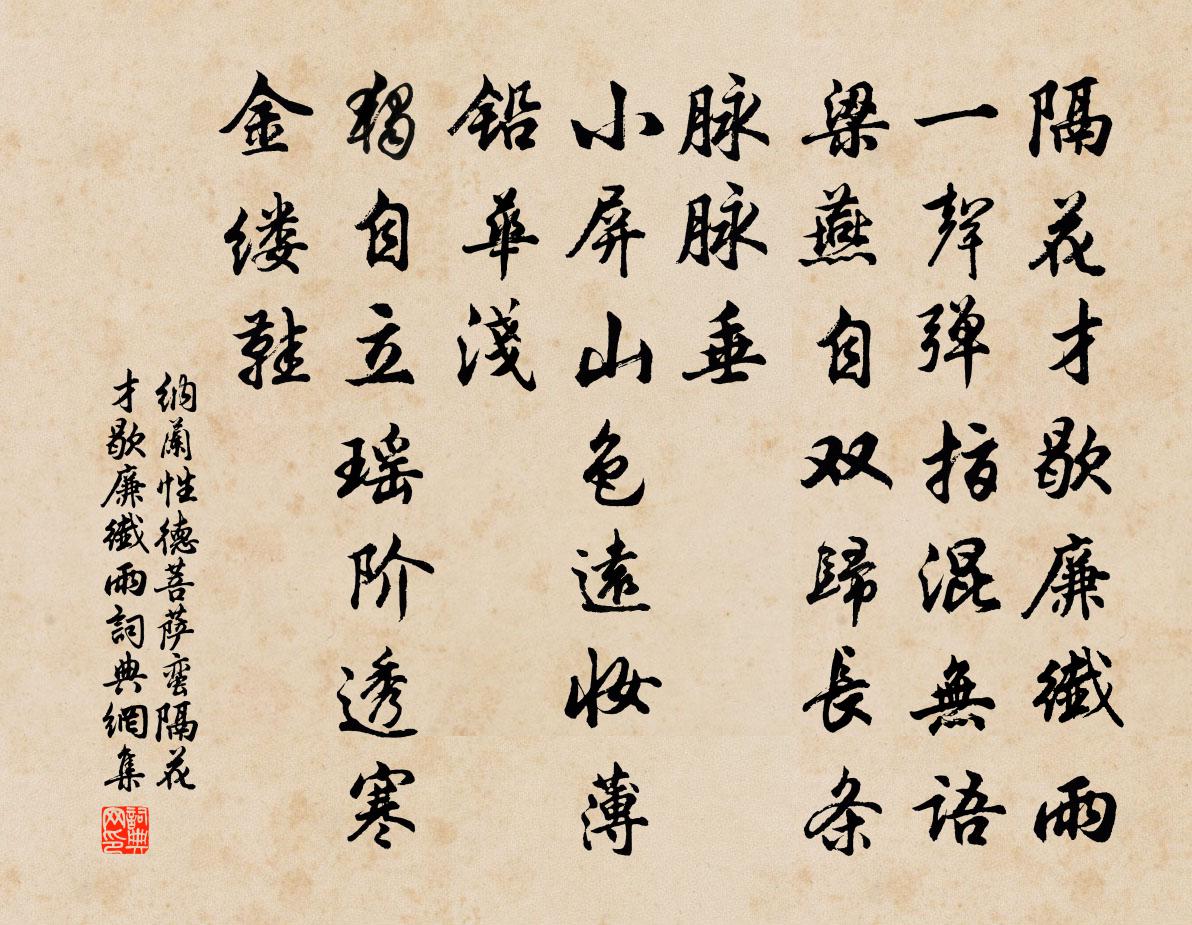 隔花才歇廉纖雨
一聲弹指混無語
梁燕自双歸長条
脉脉垂
小屏山色遠妝薄
铅華淺
獨自立瑶阶透寒
金缕鞋
納蘭性德菩萨蛮隔花
才歇廉纖雨詞典網集
詞典
网印